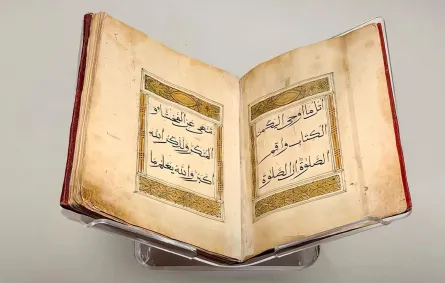 اتل ما اوحى اليك من
الكتاب واقم
الصلوة ان الصلوة
تنهى عن الفحشاء و
المنكر ولذكر الله
اكبر والله يعلم ما